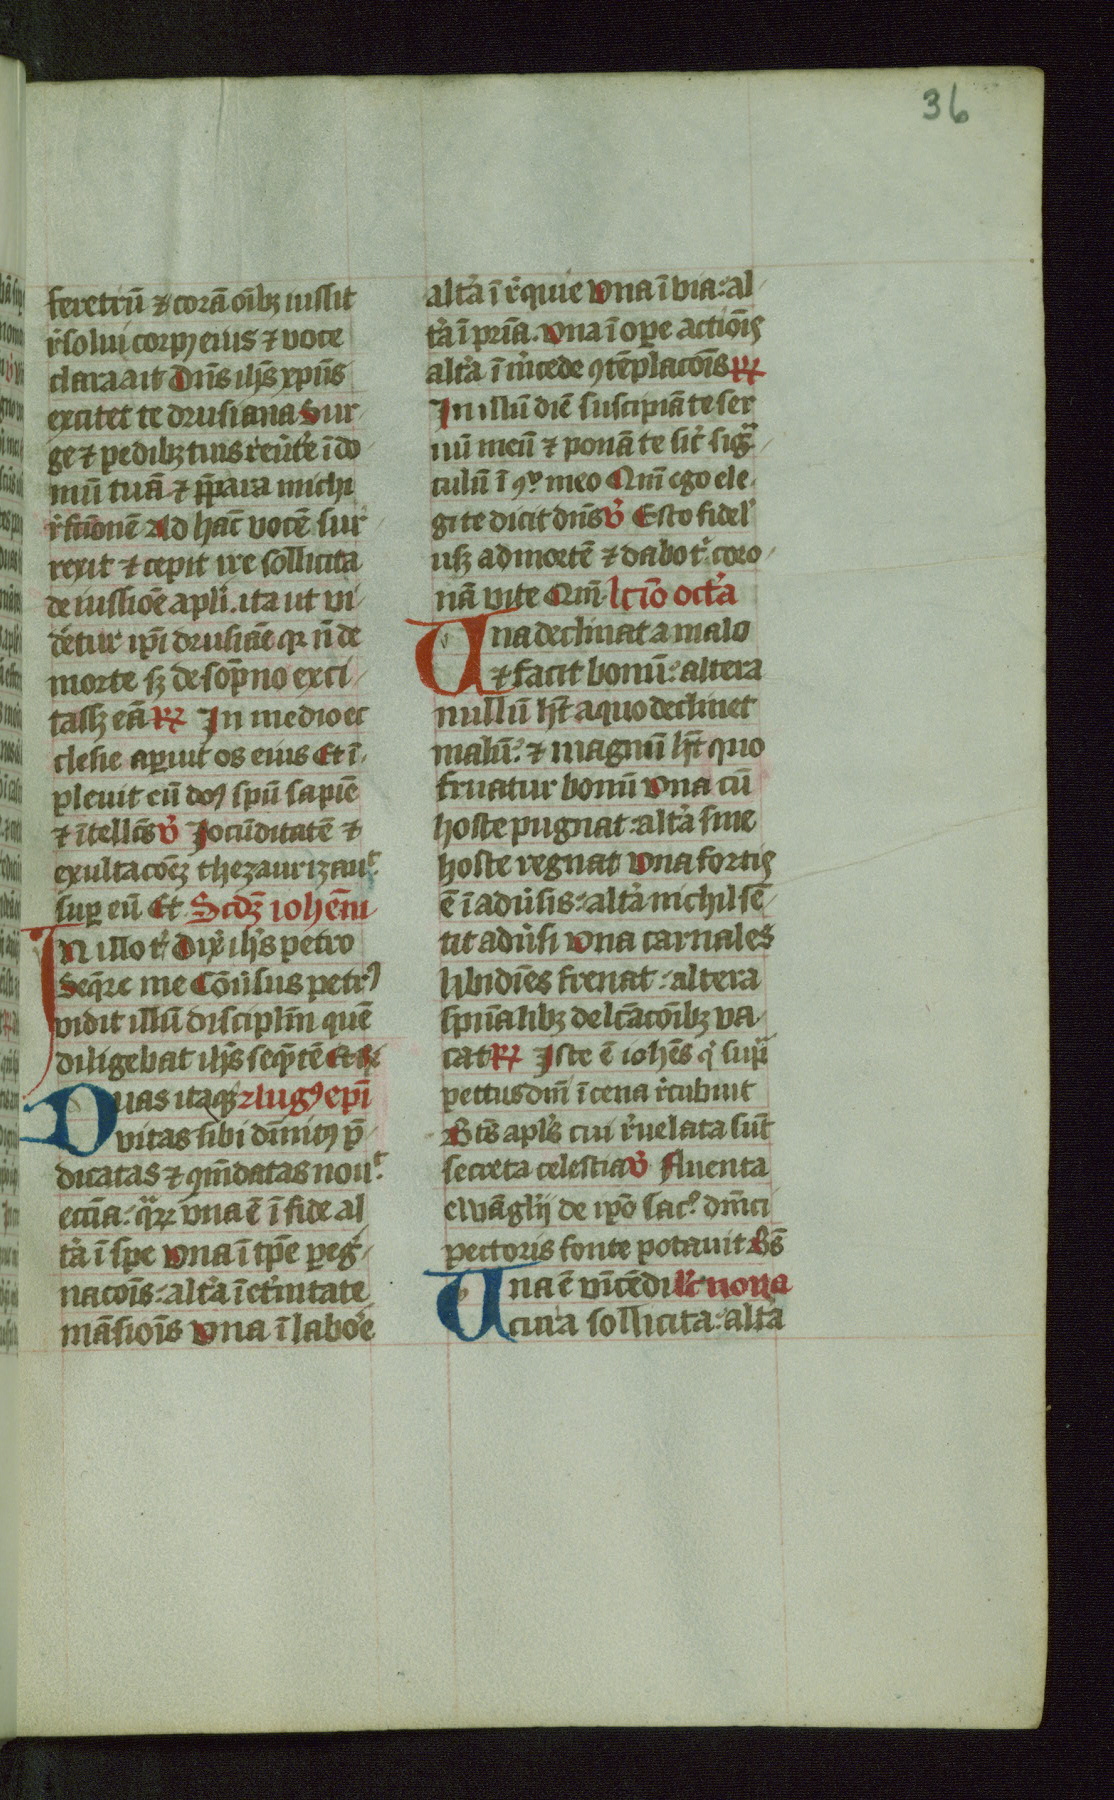 36
feretrū ⁊ corā oībꝫ iussit
r̓solui corpꝰ eius ⁊ voce
clara ait Dn̄s ih̄s xp̄us
excitet te drusiana Sur
ge ⁊ pedibꝫ tuis reūte ī do
mū tuā ⁊ p̄para michi
r̓fcōnē Ad hāc vocē sur
rexit ⁊ cepit ire sollicita
de iussiōe apl̄i. ita ut vi
dētur ip̄i drusiāe qꝛ n̄ de
morte sꝫ de sōpno exci
tassꝫ eā R In medio ec
clesie aꝑuit os eius Et ī
pleuit eū dn̄s spū sapiē
⁊ ītellcs̄ V̓ Jocūditatē ⁊
exultacōeꝫ thezaurizauᵗ
suꝑ eū Et Scdꝫ ioh̄em
In illo t̓ Dix̓ ih̄s petro
Seq̄re me Cōūsus petrꝰ
vidit illū discipl̄m quē
diligebat ih̄s seq̄ntē Et r̄
Duas itaqꝫ Augꝰ epī
vitas sibi dīnitꝰ p̄
dicatas ⁊ ꝯm̄datas nouᵗ
ecc̄ia. qͣꝝ vna ē ī fide al
tā ī spe Vna ī tp̄e ꝑeg
nacōis: alt̓a ī et̓nitate
māsiōis Vna ī labo̓e
alt̓a ī r̓quie Vna ī via: al
t̓a ī pr̄ia. Vna ī oꝑe actiōis
alt̓a ī m̓cede ꝯtēplacōis R
In illū diē suscipiā te ser
uū meū ⁊ ponā te sic̓ sigͣ
culū ī ꝯspͨ meo Qm̄ ego ele
gi te dicit dn̄s V̓ Esto fidel̓
usqꝫ ad mortē ⁊ dabo t̓ coro
nā vite Qm̄ lc̄io oct̓a
Una declinat a malo
⁊ facit bonū: altera
nullū hꝫ a quo declinet
malū: ⁊ magnū hꝫ quo
fruatur bonū Vna cū
hoste pugnat: alt̓a sine
hoste regnat Vna fortis
ē ī adūsis: alt̓a nichil sē
tit adūsi Vna carnales
libidīes frenat: altera
spūalibꝫ delc̄acōibꝫ va
cat R Iste ē ioh̄es qͥ supͣ
pectus dn̄i ī cena r̓cubuit
Bt̄s apl̄s cui r̓uelata sūt
secreta celestia V̓ Fluenta
ewāglij de ip̄o sacͦ dn̄ici
pectoris fonte potauit Bt̄s
Una ē vīcēdi lc̄ nona
cura sollicita: alt̓a